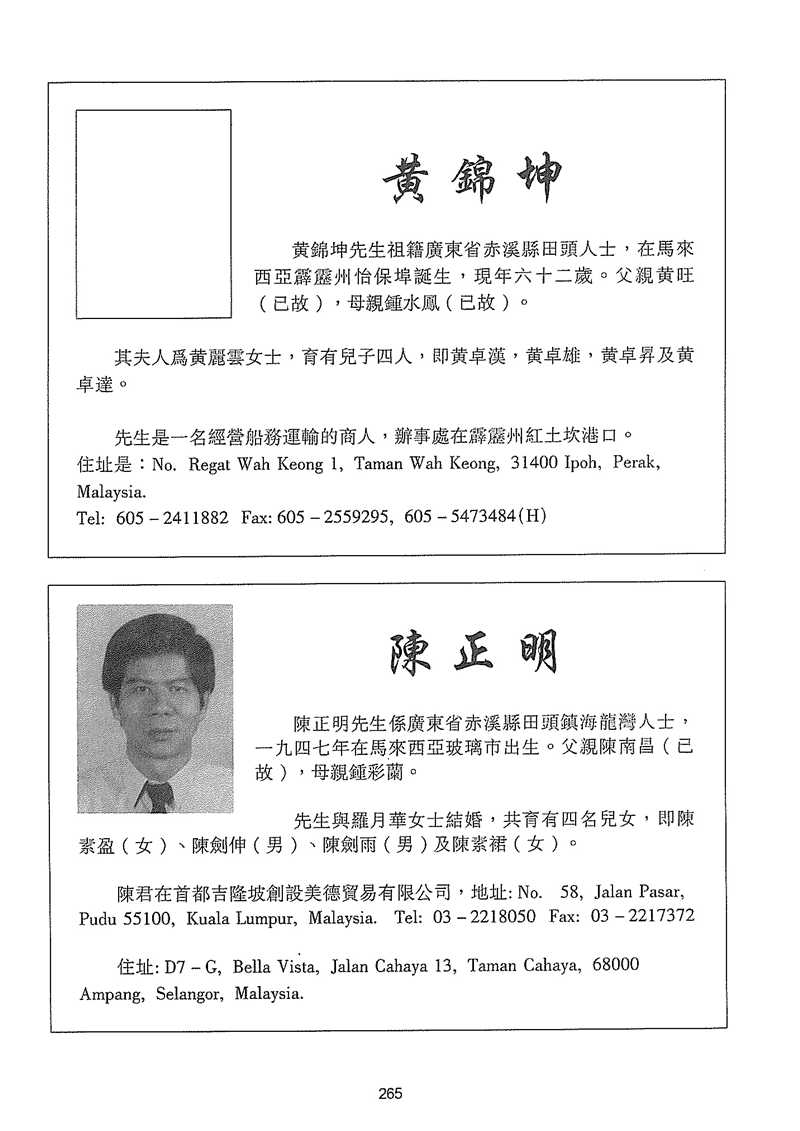 黄錦坤
黄錦坤先生祖籍廣東省赤溪縣田頭人士，在馬來
西亞霹靂州怡保埠誕生，現年六十二歲。父親黄旺
（已故），母親鍾水鳳（已故）。
其夫人爲黄麗雲女士，育有兒子四人，即黄卓漢，黄卓雄，黄卓昇及黄
卓達。
先生是一名經營船務運輸的商人，辦事處在霹靂州紅土坎港口。
住址是：No. Regat Wah Keong 1, Taman Wah Keong, 31400 Ipoh, Perak,
Malaysia.
Tel: 605－2411882 Fax: 605－2559295, 605－5473484(H)
陳正明
陳正明先生係廣東省赤溪縣田頭鎮海龍灣人士，
一九四七年在馬來西亞玻璃市出生。父親陳南昌（已
故），母親鍾彩蘭。
先生與羅月華女士結婚，共育有四名兒女，即陳
素盈（女）、陳劍伸（男）、陳劍雨（男）及陳素裙（女）。
陳君在首都吉隆坡創設美德貿易有限公司，地址: No. 58, Jalan Pasar,
Pudu 55100, Kuala Lumpur, Malaysia. Tel: 03－2218050 Fax: 03－2217372
住址: D7－G, Bella Vista, Jalan Cahaya 13, Taman Cahaya, 68000
Ampang, Selangor, Malaysia.
265